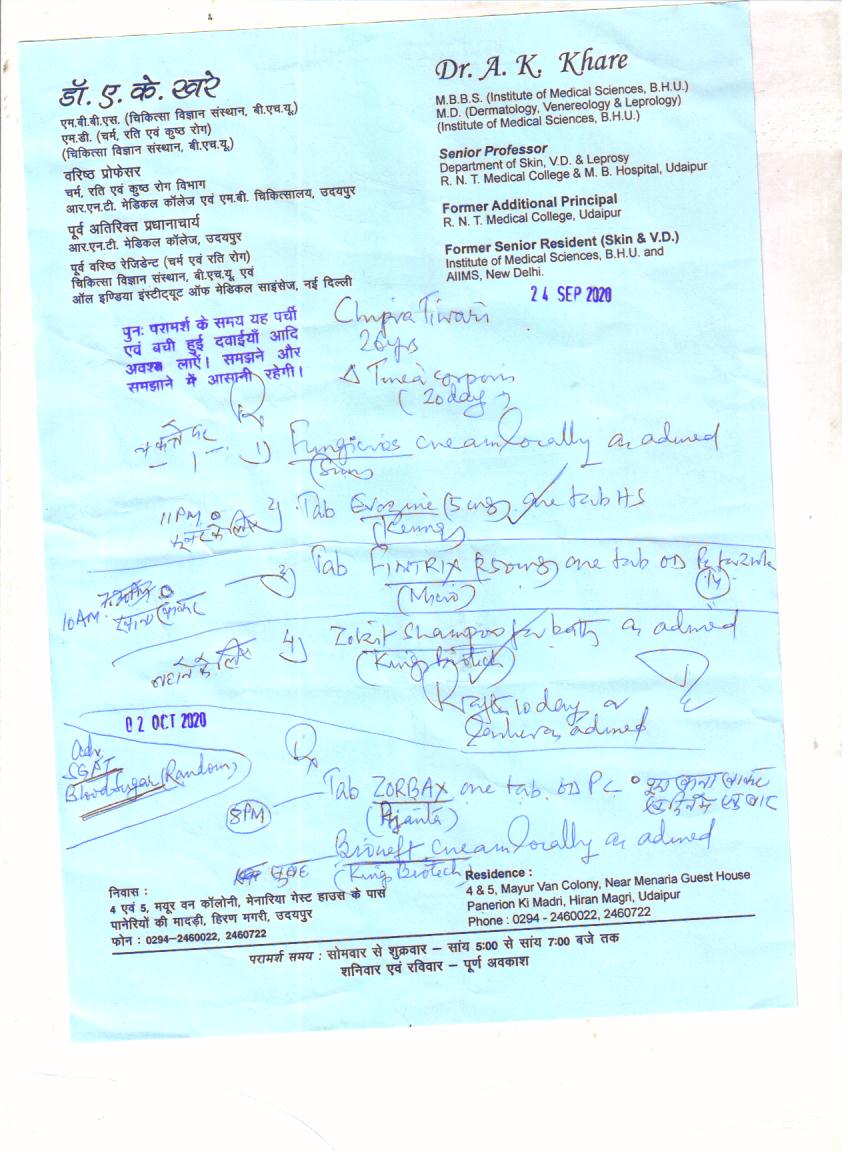 डॉ. ए. के. खरे
एम.बी.बी.एस. (चिकित्सा विज्ञान संस्थान, बी.एच.यू.)
एम.डी. (चर्म, रति एवं कुष्ठ रोग)
(चिकित्सा विज्ञान संस्थान, बी.एच.यू.)
वरिष्ठ प्रोफेसर
चर्म, रति एवं कुष्ठ रोग विभाग
आर.एन.टी. मेडिकल कॉलेज एवं एम.बी. चिकित्सालय, उदयपुर
पूर्व अतिरिक्त प्रधानाचार्य
आर.एन.टी. मेडिकल कॉलेज, उदयपुर
पूर्व वरिष्ठ रेजिडेन्ट (चर्म एवं रति रोग)
चिकित्सा विज्ञान संस्थान, बी.एच.यू. एवं
ऑल इण्डिया इंस्टीट्यूट ऑफ मेडिकल साइंसेज, नई दिल्ली
Dr. A. K. Khare
M.B.B.S. (Institute of Medical Sciences, B.H.U.)
M.D. (Dermatology, Venereology & Leprology)
(Institute of Medical Sciences, B.H.U.)
Senior Professor
Department of Skin, V.D. & Leprosy
R. N. T. Medical College & M. B. Hospital, Udaipur
Former Additional Principal
R. N. T. Medical College, Udaipur
Former Senior Resident (Skin & V.D.)
Institute of Medical Sciences, B.H.U. and
AIIMS, New Delhi.
24 SEP 2020
पुनः परामर्श के समय यह पर्ची
एवं बची हुई दवाईयाँ आदि
अवश्य लाऐं। समझने और
समझाने में आसानी रहेगी।
Tiwari
26 yrs
Δ Tinea corporis
(20 days)
Rx
1) cream locally as advised
11 PM
2) Tab (5 mg) one tab HS
10 AM
3) Tab FINTRIX 250mg one tab OD
(Micro)
नहाने के लिए
4) Shampoo for bath as advised
(King Biotech)
R after 10 days or
earlier as advised
02 OCT 2020
Adv.
SGPT
Blood Sugar (Random)
Rx
8 PM
Tab ZORBAX one tab. OD PC
(Ajanta)
cream locally as advised
सुबह
(King Biotech)
निवास :
4 एवं 5, मयूर वन कॉलोनी, मेनारिया गेस्ट हाउस के पास
पानेरियों की मादड़ी, हिरण मगरी, उदयपुर
फोन : 0294-2460022, 2460722
Residence :
4 & 5, Mayur Van Colony, Near Menaria Guest House
Panerion Ki Madri, Hiran Magri, Udaipur
Phone : 0294 - 2460022, 2460722
परामर्श समय : सोमवार से शुक्रवार – सांय 5:00 से सांय 7:00 बजे तक
शनिवार एवं रविवार – पूर्ण अवकाश